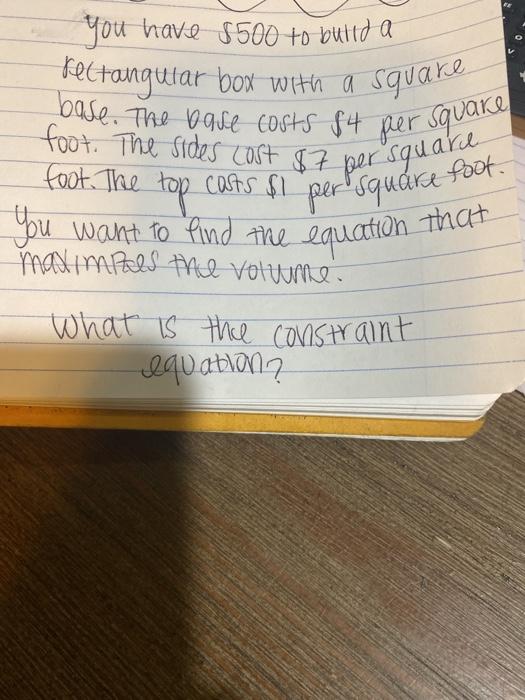 you have $500 to build a
rectangular box with a square
base. The base costs $4 per square
foot. The sides cost $7 per square
foot. The top costs $1 per square foot.
You want to find the equation that
maximizes the volume.
What is the constraint
equation?